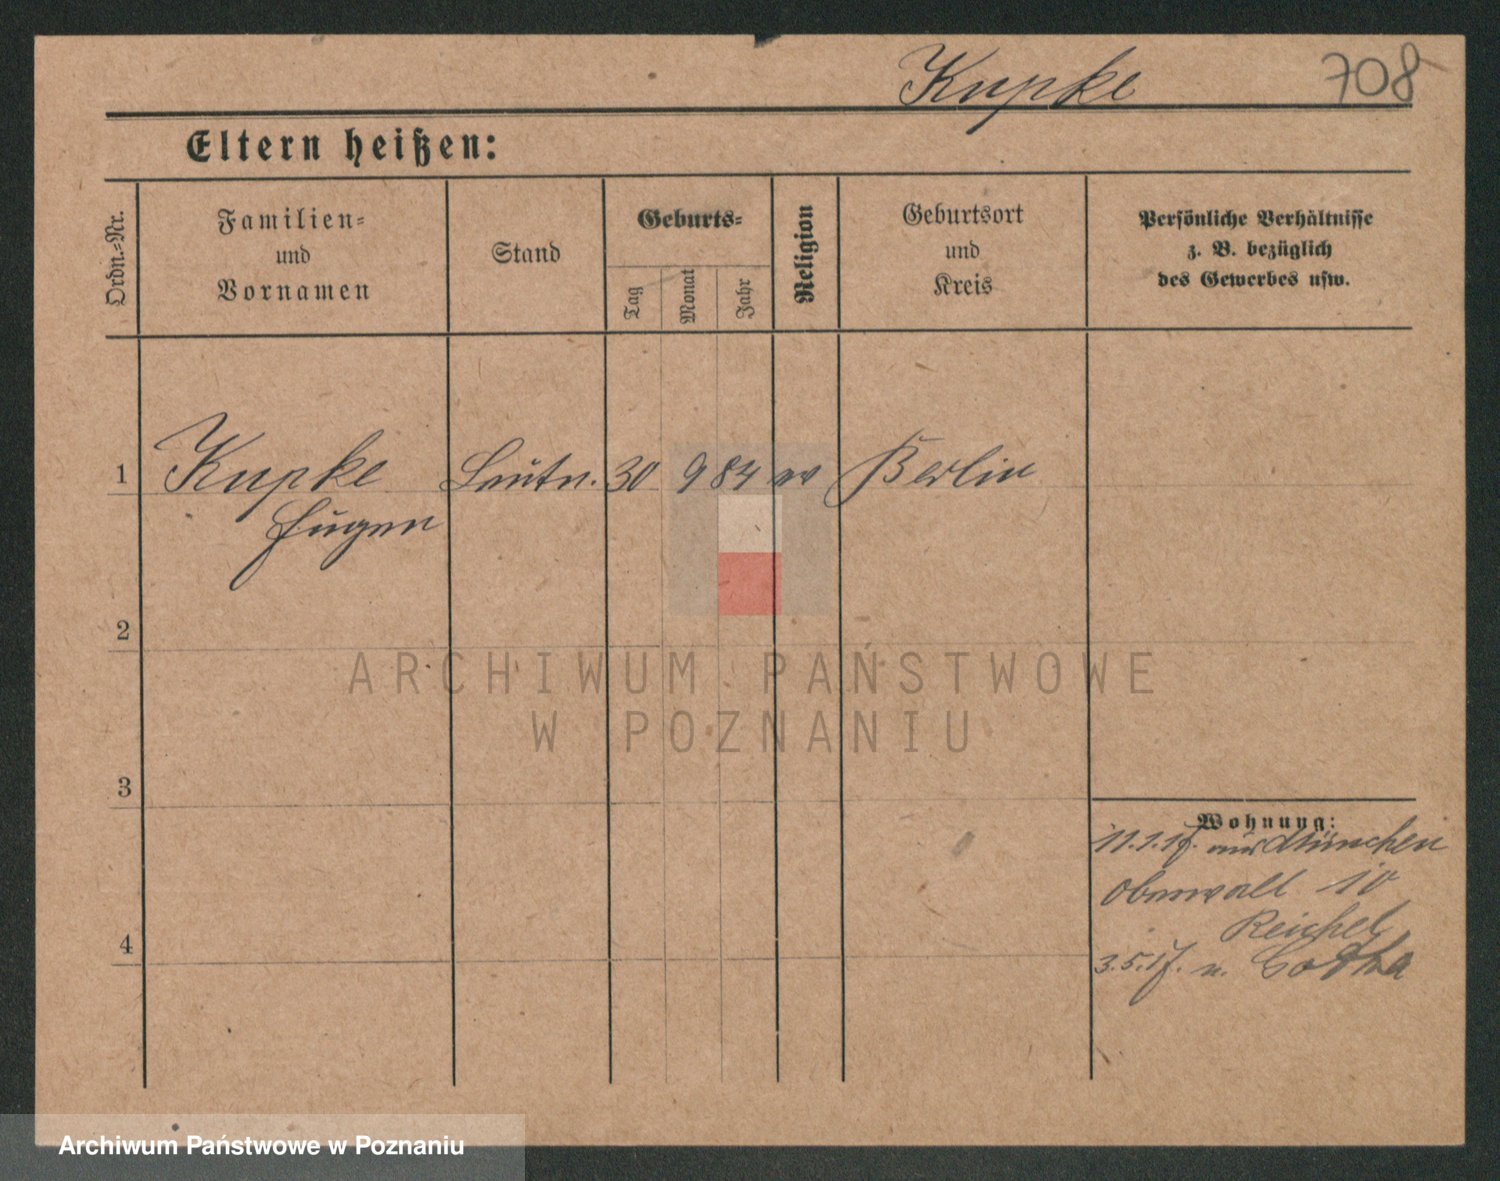 Kupke 708
Eltern heißen:
Ordn.-Nr.
Familien-
und
Vornamen
Stand
Geburts-
Tag
Monat
Jahr
Religion
Geburtsort
und
Kreis
Persönliche Verhältnisse
z. B. bezüglich
des Gewerbes usw.
1 Kupke Leutn. 30 9 84 ev Berlin
Eugen
2
3
4
Wohnung:
11.1.17. aus München
Oberwall 10
Reichel
3.5.17. n. Gotha
ARCHIWUM PAŃSTWOWE
W POZNANIU
Archiwum Państwowe w Poznaniu